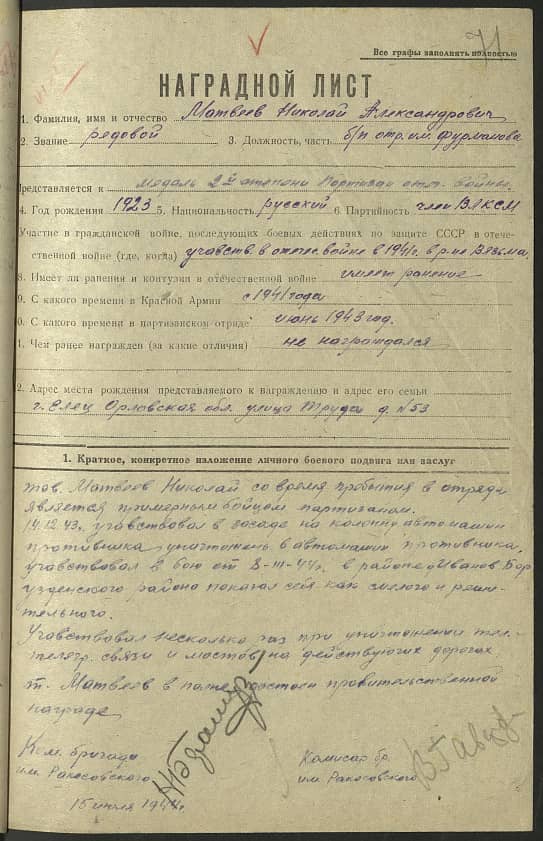 71
Все графы заполнять полностью
НАГРАДНОЙ ЛИСТ
1. Фамилия, имя и отчество Матвеев Николай Александрович
2. Звание редовой 3. Должность, часть б/п отр. им. Фурманова
Представляется к Медаль 2й степени Партизан отеч. войны.
4. Год рождения 1923 5. Национальность русский 6. Партийность член ВЛКСМ
Участие в гражданской войне, последующих боевых действиях по защите СССР в отече-
ственной войне (где, когда) учавств. в отечес. войне в 1941г. в р-не Вязьма,
8. Имеет ли ранения и контузии в отечественной войне имеет ранение
9. С какого времени в Красной Армии с 1941 года
0. С какого времени в партизанском отряде июнь 1943 год.
1. Чем ранее награжден (за какие отличия) не награждался
2. Адрес места рождения представляемого к награждению и адрес его семьи
г. Елец Орловская обл. улица Труда д. №53
1. Краткое, конкретное изложение личного боевого подвига или заслуг
тов. Матвеев Николай со время пробытия в отряди
является примерным бойцом партизаном.
14.12.43г. учавствовал в засаде на колонну автомашин
противника, уничтожень автомашин противника.
учавствовал в бою от 8-III-44г. в районе д Иванов Бор
узденского района показал себя как смелого и реши-
тельного.
Учавствовал несколько раз при уничтожении тел-
телегр. связи и мостов на действующих дорогах
т. Матвеев в полне достоен правительственной
награде
Ком. бригады
им. Ракосовского
Комисар бр.
им. Ракосовского
15 июля 1944г.